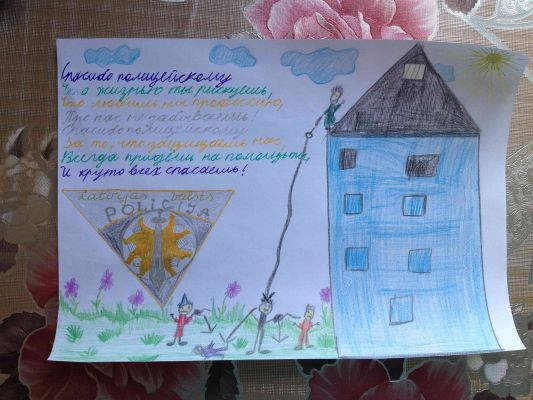 Спасибо полицейскому
Что жизнью ты рискуешь,
Что любишь ты профессию,
Про нас не забываешь!
Спасибо полицейскому
За то, что защищаешь нас,
Всегда придёшь на помощь ты,
И круто всех спасаешь!
Latvijas valsts
POLICIJA